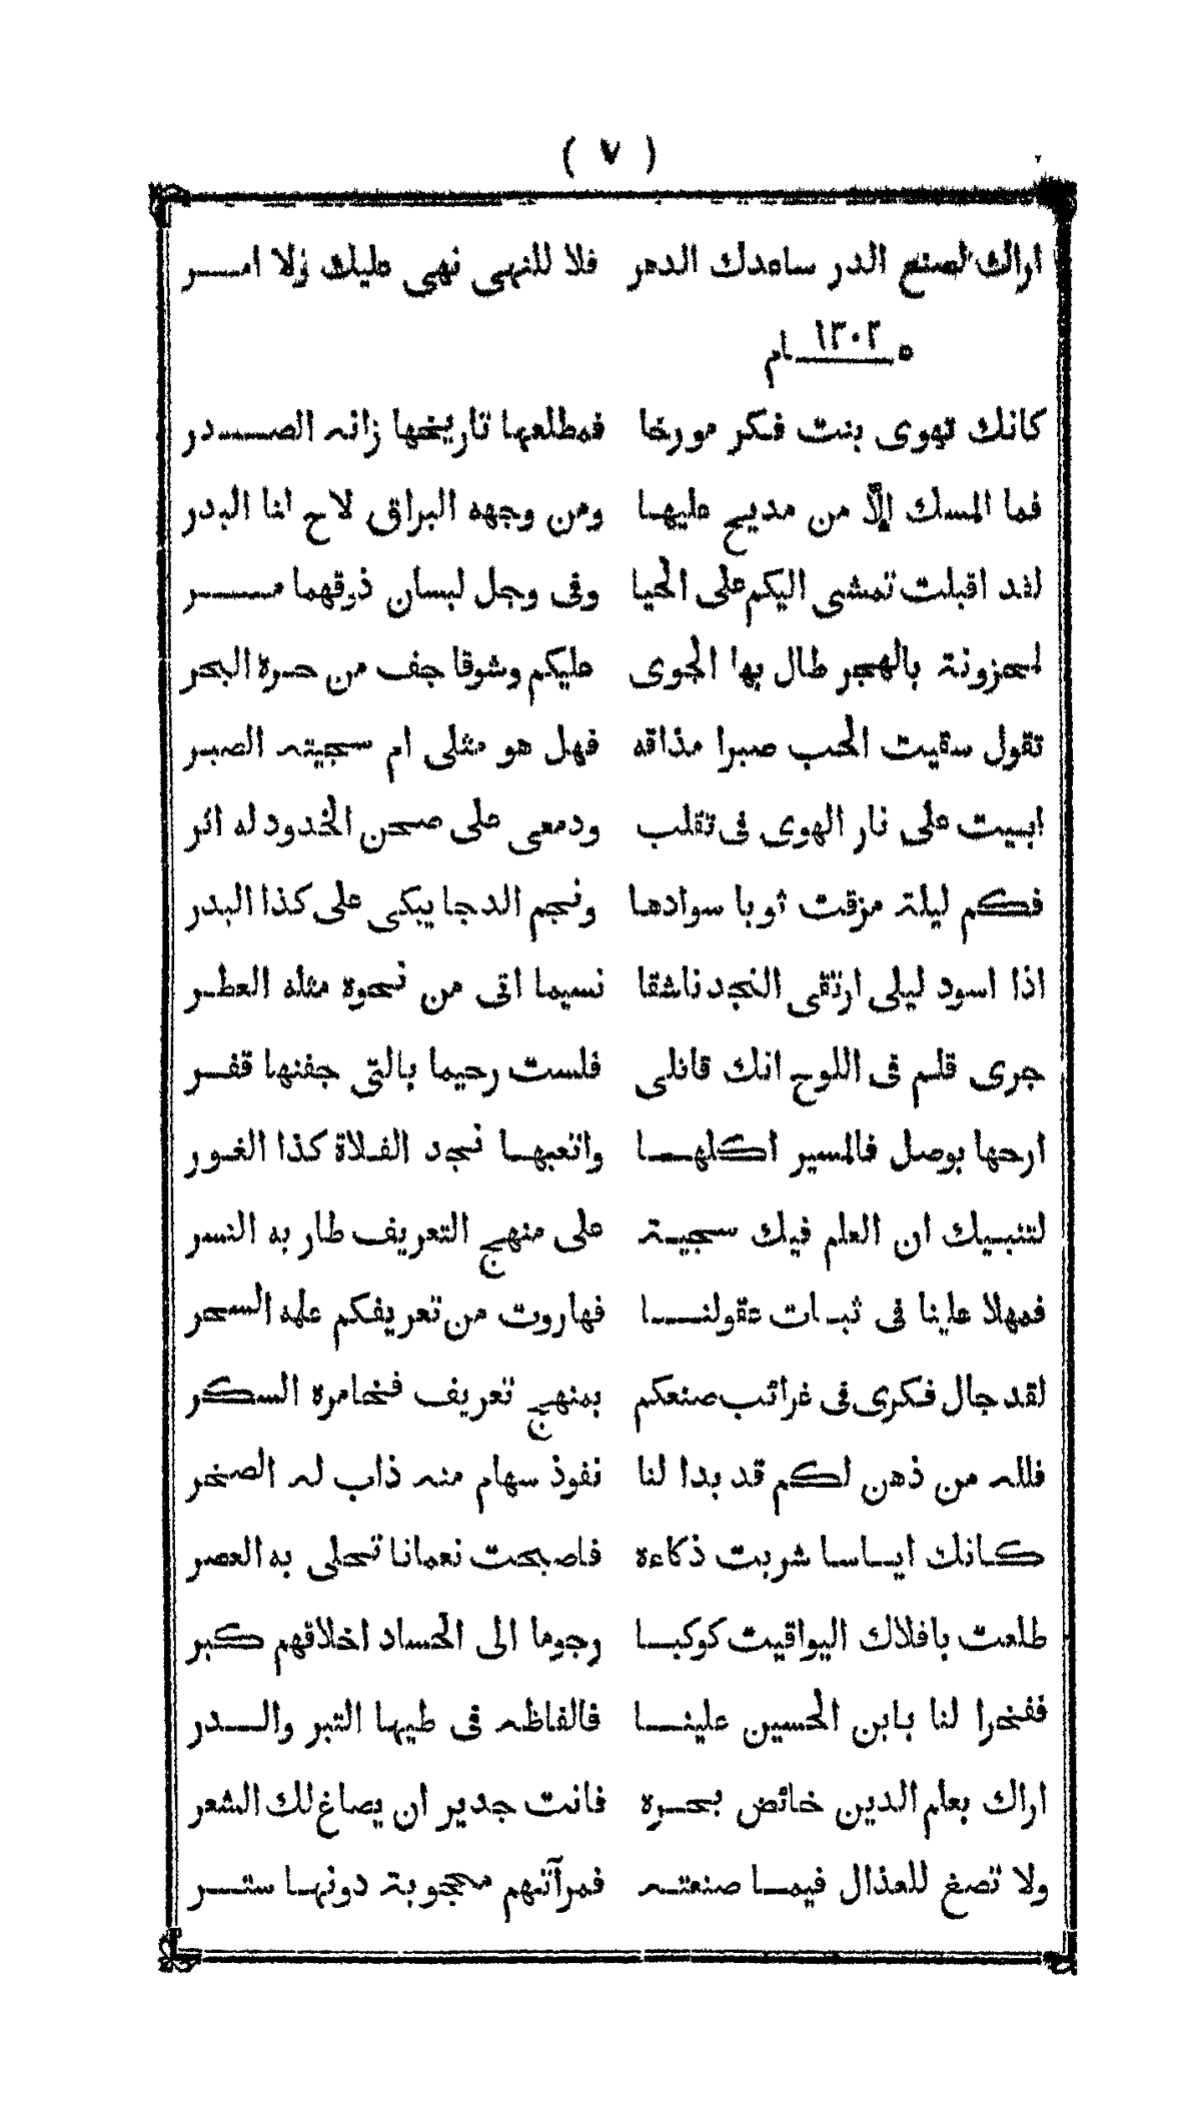 ( ٧ )
اراك لصنع الدر ساعدك الدهر فلا للنهى نهى عليك ولا امر
١٣٠٣ عام
كانك تهوى بنت فكر مورخا فمطلعها تاريخها زانه الصدر
فما المسك إلّا من مديح عليها ومن وجهه البراق لاح لنا البدر
لقد اقبلت تمشى اليكم على الحيا وفى وجل لبسان ذوقهما مر
لمحزونة بالهجر طال بها الجوى عليكم وشوقا جف من حره البحر
تقول سقيت الحب صبرا مذاقه فهل هو مثلى ام سجيته الصبر
ابيت على نار الهوى فى تقلب ودمعى على صحن الخدود له اثر
فكم ليلة مزقت ثوبا سوادها ونجم الدجا يبكى على كذا البدر
اذا اسود ليلى ارتقى النجد ناشقا نسيما اتى من نحوه مثله العطر
جرى قلم فى اللوح انك قاتلى فلست رحيما بالتى جفنها قفر
ارحها بوصل فالمسير اكلها واتعبها نجد الفلاة كذا الغور
لتنبيك ان العلم فيك سجية على منهج التعريف طار به النسر
فمهلا علينا فى ثبات عقولنا فهاروت من تعريفكم عله السحر
لقد جال فكرى فى غرائب صنعكم بمنهج تعريف فخامره السكر
فلله من ذهن لكم قد بدا لنا نفوذ سهام منه ذاب له الصخر
كانك اياسا شربت ذكاءه فاصبحت نعمانا تحلى به العصر
طلعت بافلاك اليواقيت كوكبا رجوما الى الحساد اخلاقهم كبر
ففخرا لنا بابن الحسين علينا فالفاظه فى طيها التبر والدر
اراك بعلم الدين خائض بحره فانت جدير ان يصاغ لك الشعر
ولا تصغ للعذال فيما صنعته فمرآتهم محجوبة دونها ستر